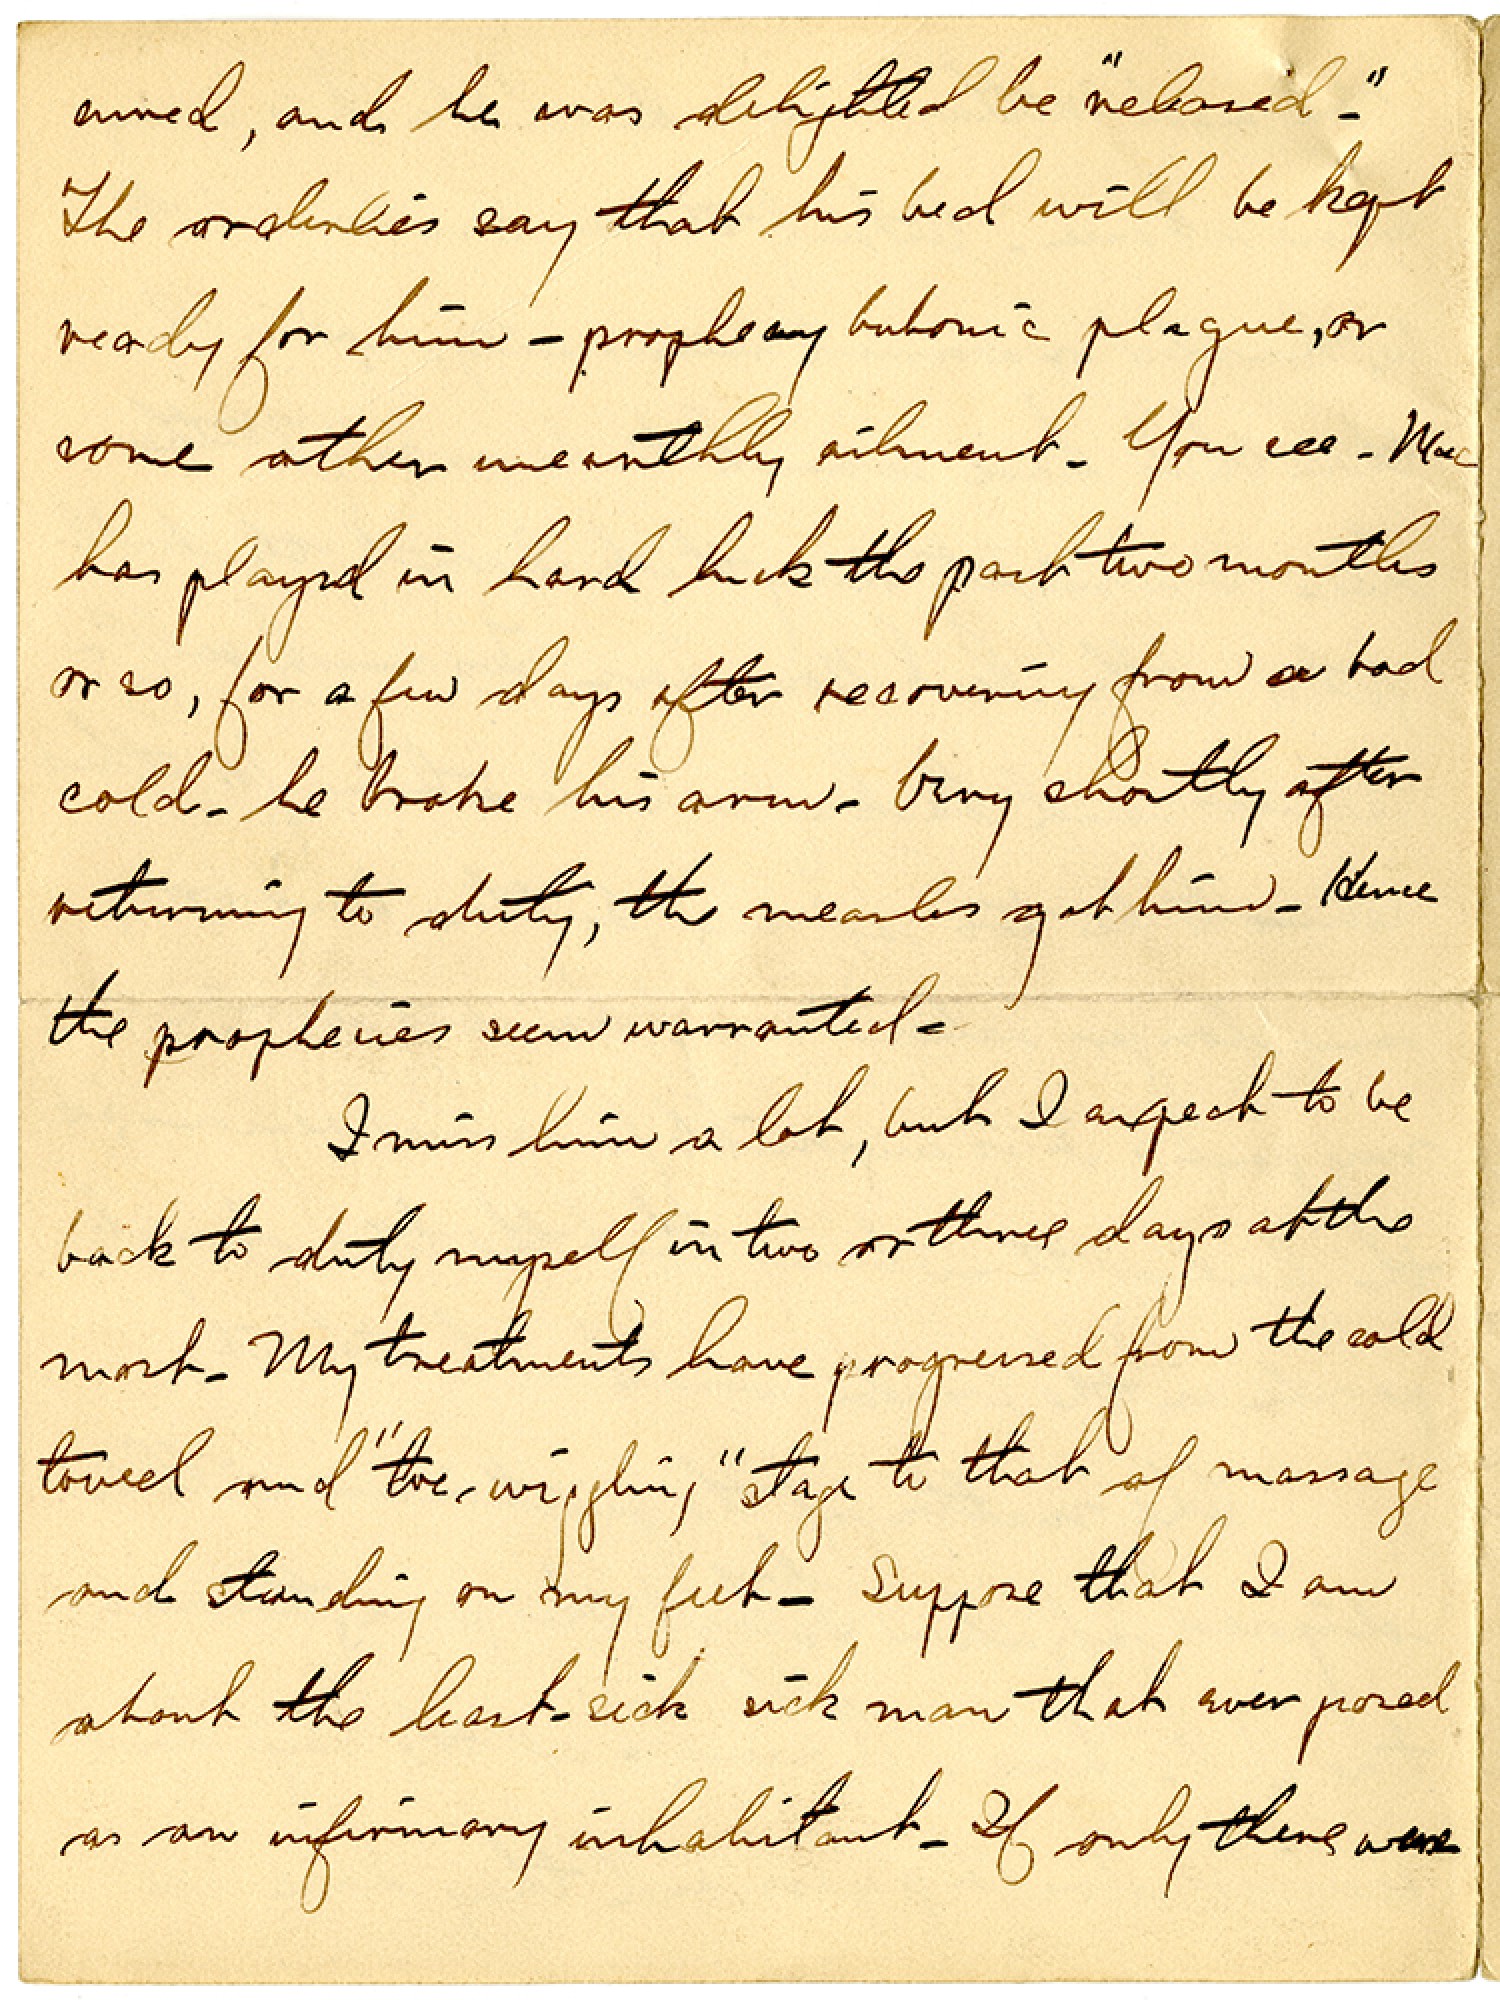 cured, and he was delighted be "released-"
The orderlies say that his bed will be kept
ready for him - prophesy bubonic plague, or
some other unearthly ailment - You see - Mac
has played in hard luck the past two months
or so, for a few days after recovering from a bad
cold - he broke his arm - Very shortly after
returning to duty, the measles got him - Hence
the prophecies seem warranted -
I miss him a lot, but I expect to be
back to duty myself in two or three days at the
most - My treatments have progressed from the cold
towel and "toe-wiggling" stage to that of massage
and standing on my feet - Suppose that I am
about the least-sick sick man that ever posed
as an infirmary inhabitant - If only there were